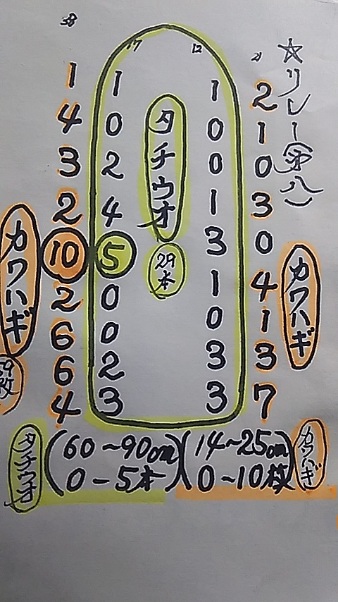 ☆リレー
38 17 12 21
1 1 1 2
4 0 0 1
3 2 0 0
2 4 1 3
10 5 3 0
2 0 1 4
6 0 0 1
6 2 3 3
4 3 3 7
タチウオ
29本
カワハギ
カワハギ
タチウオ (60～90cm) (14～25cm) カワハギ
0－5本 0～10枚